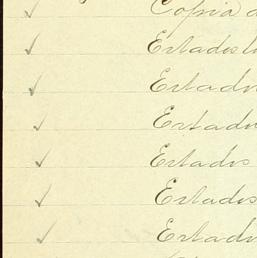 Copia
Estados
Estados
Estados
Estados
Estados
Estados